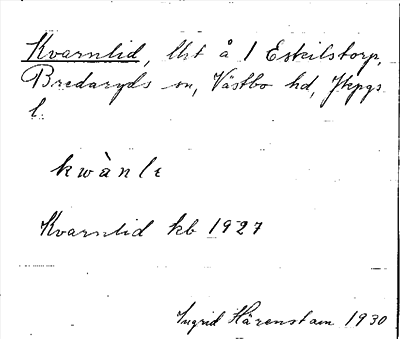 Kvarnlid, lht å 1 Eskilstorp,
Bredaryds sn, Västbo hd, Jkpgs
l.
kwànlɛ
Kvarnlid kb 1927
Ingrid Härenstam 1930